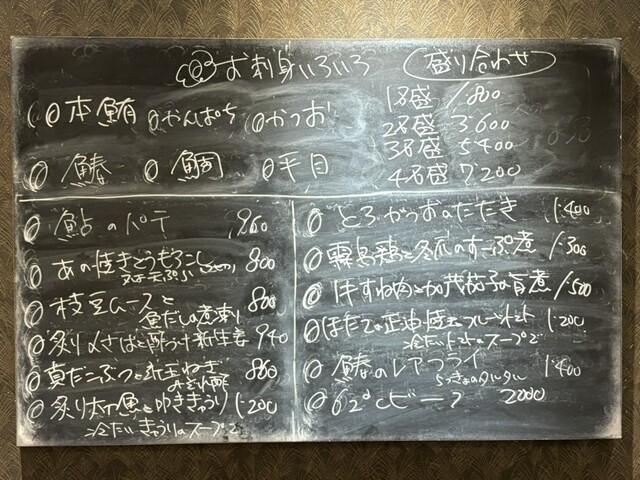 お刺身いろいろ
盛り合わせ
本鮪 かんぱち かつお
鰆 鯛 平目
1名盛 1,800
2名盛 3,600
3名盛 5,400
4名盛 7,200
鮎のパテ 960
焼きとうもろこし 800
枝豆ムースと 800
魚だしの煮凍り
炙り〆さばと酢づけ新生姜 940
真だこぶつと新玉ねぎ 860
みぞれ酢
炙り太刀魚と叩ききゅうり 1,200
冷たいきゅうりのスープで
とろかつおのたたき 1,400
霧島鶏と冬瓜のすーぷ煮 1,300
牛すね肉と加茂茄子の旨煮 1,500
ほたての正油焼き フルーツトマト 1,200
冷たいトマトのスープで
鰆のレアフライ 1,400
らっきょのタルタル
62°Cビーフ 2000